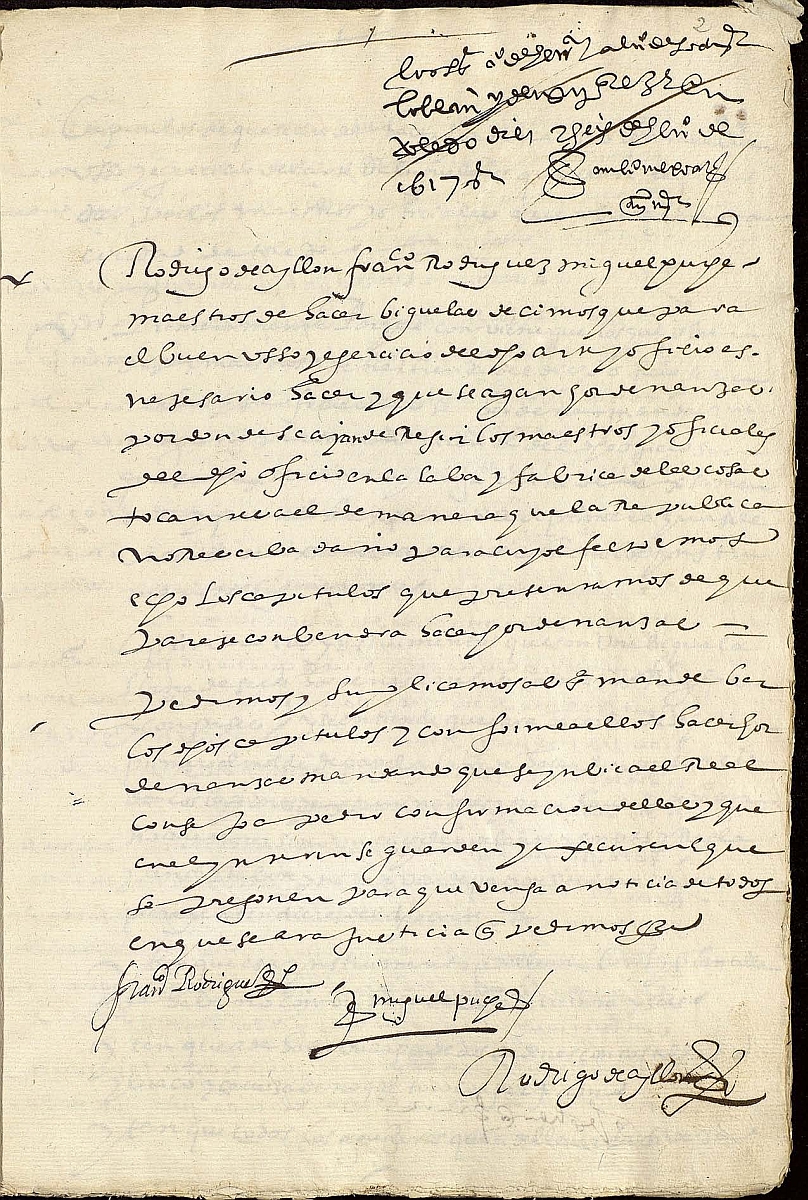 2
lo bean y den
toledo diez y seis de hen.o de
1617 a.s
Rodrigo de ayllon fran.co Rodriguez miguel puche
maestros de hacer biguelas decimos que para
el buen usso y egercicio del d[ic]ho arte y oficio es
nesesario hacer y que se agan hordenanzas
por donde se ayan de Regir los maestros y oficiales
del dho oficio en la laba y fabrica de las cosas
tocantes a el de manera que la Republica
no Reciba daño para cuyo efecto emos
echo los capitulos que presentamos de que
parese conbendra hacer hordenanzas
Pedimos y suplicamos a V S.a mande ber
los dhos capitulos y conforme a ellos hacer hor
denanzas mandando que se suplica el Real
consejo pedir confirmacion dellas y que
en el ynterin se guarden y executen y que
se pregonen para que venga a noticia de todos
en que se ara justicia q pedimos
fran.co Rodriguez
miguel puche
Rodrigo de ayllon